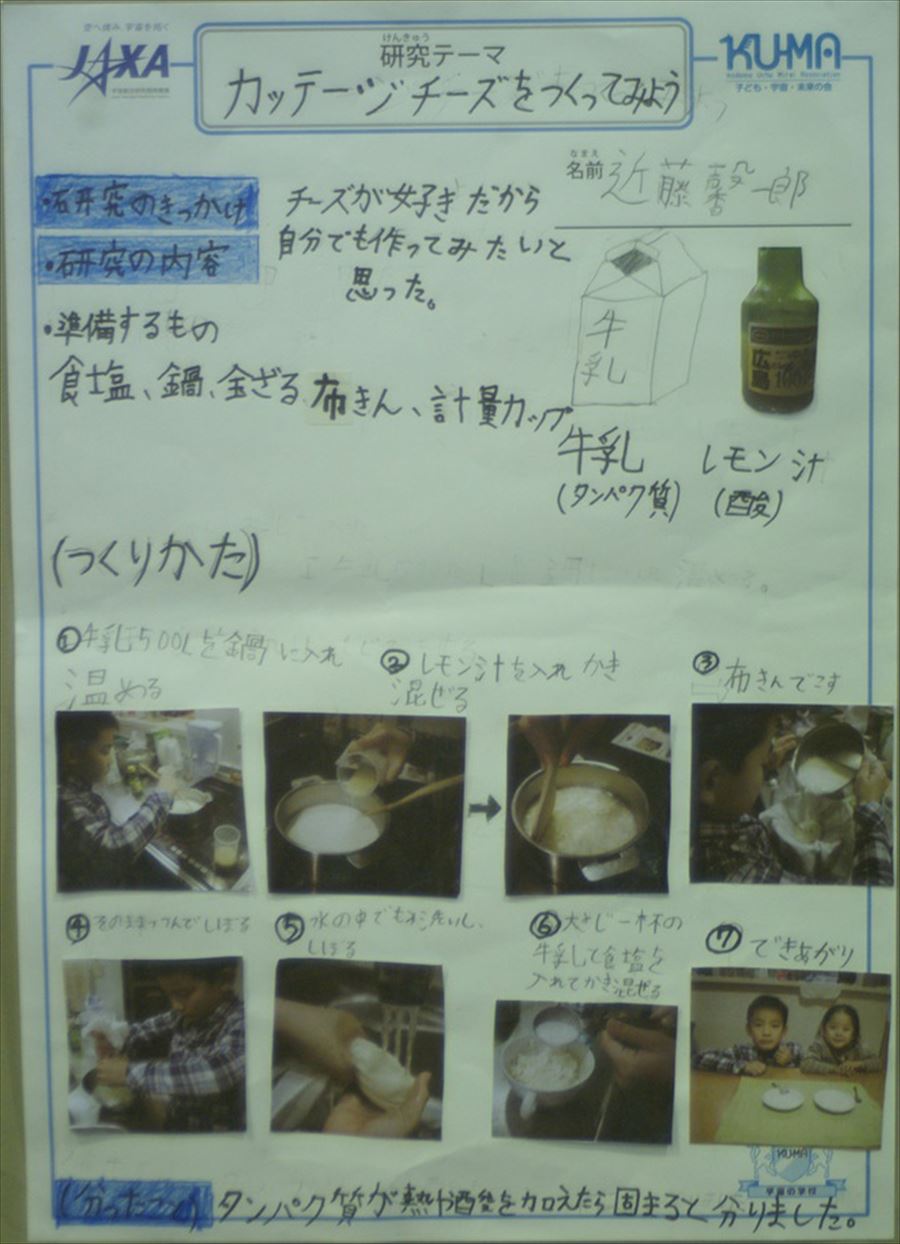 空へ挑み、宇宙を拓く
JAXA
けんきゅう
研究テーマ
カッテージチーズをつくってみよう
KU-MA
Kodomo Uchu Mirai Association
子ども・宇宙・未来の会
なまえ
名前 近藤馨一郎
・研究のきっかけ
チーズが好きだから
自分でも作ってみたいと
思った。
・研究の内容
・準備するもの
食塩、鍋、金ざる、布きん、計量カップ
牛乳
広島
牛乳
(タンパク質)
レモン汁
(酸)
(つくりかた)
① 牛乳500Lを鍋に入れ
温める
② レモン汁を入れ かき
混ぜる
③ 布きんでこす
④ そのままつつんでしぼる
⑤ 水の中でもみ洗いし、
しぼる
⑥ 大さじ一杯の
牛乳して食塩を
入れてかき混ぜる
⑦ できあがり
KUMA
宇宙の学校
(分ったこと) タンパク質が熱や酸を加えたら固まると分りました。